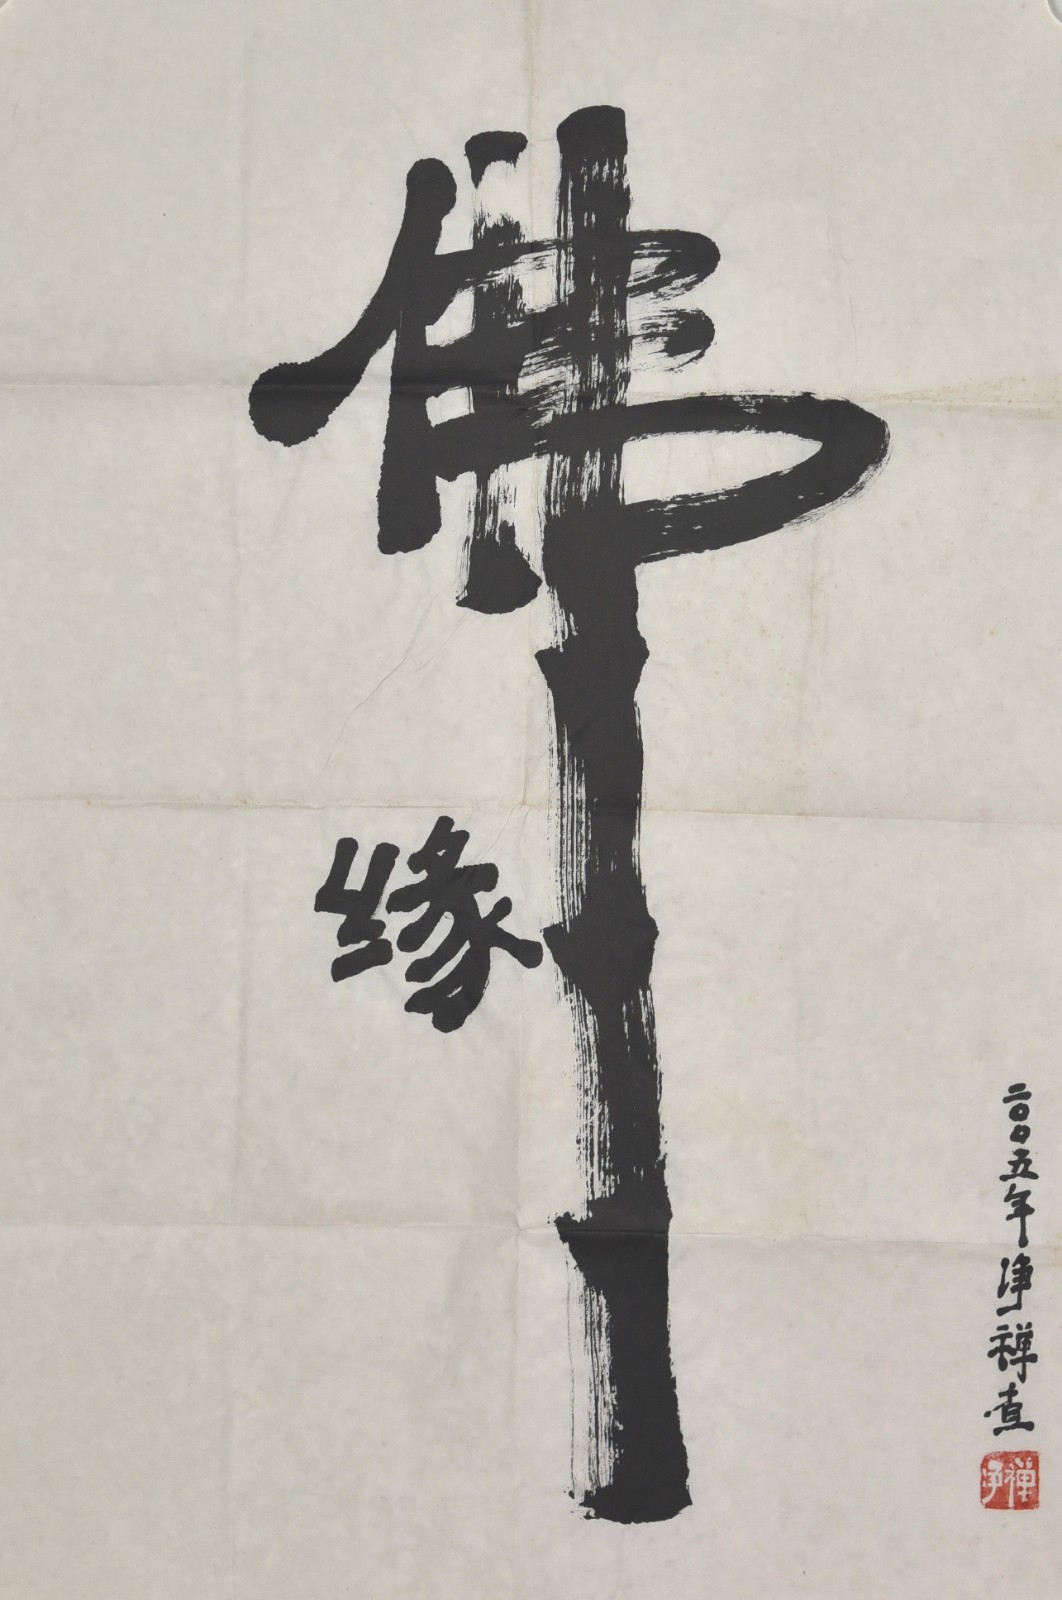 佛
缘
二〇〇五年净禅壹
禅净